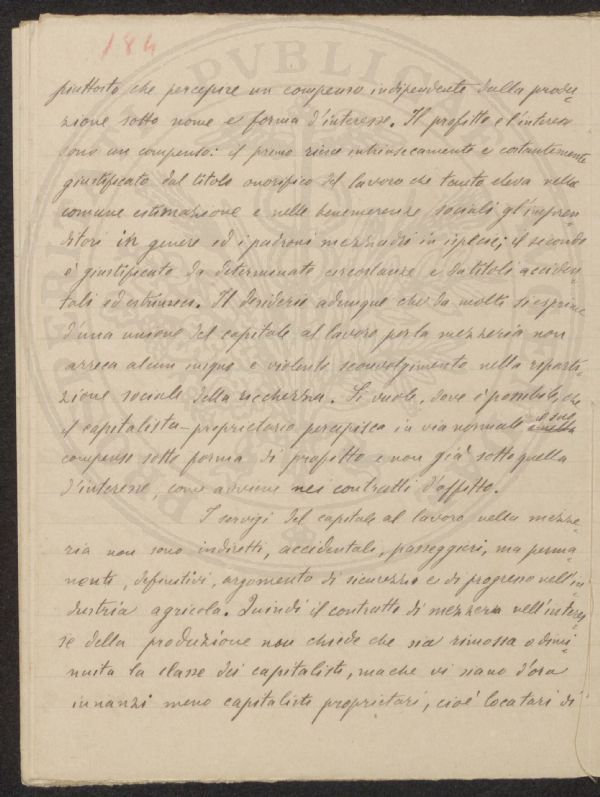 184
piuttosto che percepire un compenso indipendente dalla produ-
zione sotto nome e forma d'interesse. Il profitto e l'interesse
sono un compenso: il primo riesce intrinsecamente e costantemente
giustificato dal titolo onorifico del lavoro che tanto eleva nella
comune estimazione e nelle benemerenze sociali gl'impren-
ditori in genere ed i padroni mezzadri in ispecie; il secondo
è giustificato da determinate circostanze e da titoli acciden-
tali ed estrinseci. Il desiderio adunque che da molti si esprime
d'una unione del capitale al lavoro per la mezzeria non
arreca alcun iniquo e violento sconvolgimento nella riparti-
zione sociale della ricchezza. Si vuole, dove è possibile, che
il capitalista-proprietario percepisca in via normale il suo
compenso sotto forma di profitto e non già sotto quella
d'interesse, come avviene nei contratti d'affitto.
I servigi del capitale al lavoro nella mezze-
ria non sono indiretti, accidentali, passeggieri, ma perma-
nenti, definitivi, argomento di sicurezza e di progresso nell'in-
dustria agricola. Quindi il contratto di mezzeria nell'interes-
se della produzione non chiede che sia rimossa o dimi-
nuita la classe dei capitalisti, ma che vi siano d'ora
innanzi meno capitalisti proprietari, cioè locatari di